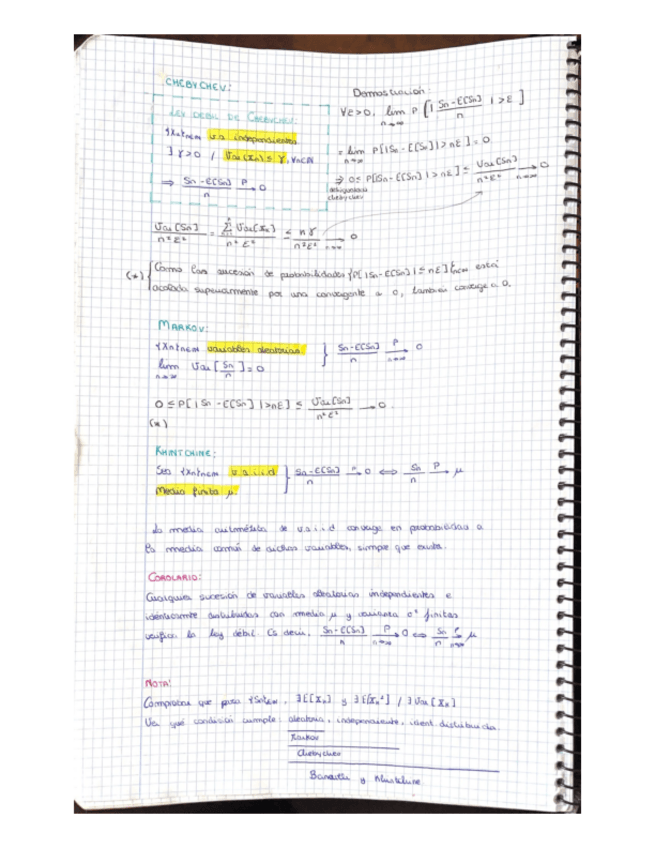 CHEBYCHEV:
LEY DÉBIL DE CHEBYCHEV:
{Xn}n∈N v.a independientes
∃ γ>0 / Var(Xn) ≤ γ, ∀n∈N
⇒ Sn-E[Sn] / n →P 0
Demostración:
∀ε>0, lim n→∞ P[| Sn-E[Sn] / n | > ε]
= lim n→∞ P[|Sn - E[Sn]| > nε] = 0
⇒ 0 ≤ P[|Sn - E[Sn]| > nε] ≤ Var[Sn] / n²ε² → n→∞ 0
desigualdad
chebychev
Var[Sn] / n²ε² = Σ Var[Xn] / n²ε² ≤ nγ / n²ε² → n→∞ 0
(*) { Como la sucesión de probabilidades {P[|Sn - E[Sn]| ≤ nε]}n∈N está
acotada superiormente por una convergente a 0, también converge a 0.
MARKOV:
{Xn}n∈N variables aleatorias } Sn-E[Sn] / n →P n→∞ 0
lim n→∞ Var[Sn / n] = 0
0 ≤ P[|Sn - E[Sn]| > nε] ≤ Var[Sn] / n²ε² → 0.
(*)
KHINTCHINE:
Sea {Xn}n∈N v.a.i.i.d } Sn-E[Sn] / n →P 0 ⟺ Sn / n →P μ
Media finita μ.
La media aritmética de v.a.i.i.d converge en probabilidad a
la media común de dichas variables, siempre que exista.
COROLARIO:
Cualquier sucesión de variables aleatorias independientes e
idénticamente distribuidas con media μ y varianza σ² finitas
verifica la ley débil. Es decir, Sn-E[Sn] / n →P n→∞ 0 ⟺ Sn / n →P n→∞ μ
NOTA:
Comprobar que para {Sn}n∈N, ∃E[Xn] y ∃E[Xn²] / ∃Var[Xn]
Ver qué condición cumple: aleatoria, independiente, ident. distribuida
Markov
Chebychev
y Khintchine